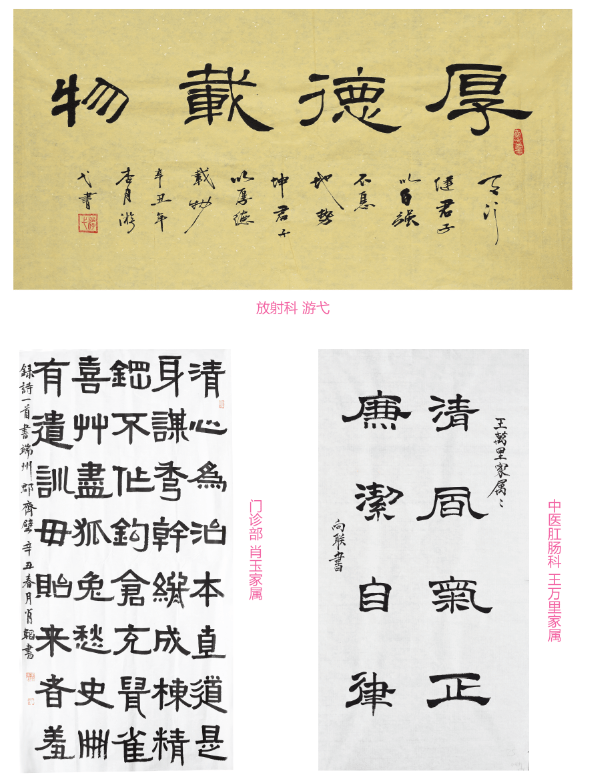 厚德載物
天行
健君子
以自强
不息
地勢
坤君子
以厚德
載物
辛丑年
杏月游
弋書
放射科 游弋
清心為治本直道是
身謀秀幹終成棟精
鋼不作鈎倉充鼠雀
喜艸盡狐兔愁史冊
有遺訓毋貽来者羞
録詩一首書端州郡齊壁辛丑春月肖書
门诊部 肖玉家属
王萬里家属
清風氣正
廉潔自律
向联書
中医肛肠科 王万里家属